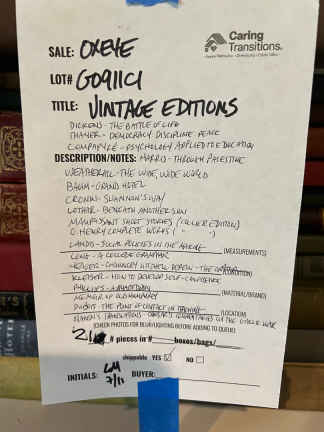 SALE: OXEYE
Caring
Transitions.
LOT# G0911C1
TITLE: VINTAGE EDITIONS
DICKENS - THE BATTLE OF LIFE
THAYER - DEMOCRACY DISCIPLINE PEACE
COMPAYRE - PSYCHOLOGY APPLIED TO EDUCATION
DESCRIPTION/NOTES: MORRIS - THROUGH PALESTINE
WEATHERALL - THE WIDE, WIDE WORLD
BAUM - GRAND HOTEL
CRONIN - SHANNON'S WAY
LOTHAR - BENEATH ANOTHER SUN
MAUPASSANT SHORT STORIES (COLLIER EDITION)
O. HENRY COMPLETE WORKS ( " )
LANDIS - SOCIAL POLICIES IN THE MAKING
(MEASUREMENTS)
LONG - A COLLEGE GRAMMAR
(CONDITION)
KLEISER - HOW TO DEVELOP SELF-CONFIDENCE
(MATERIAL/BRAND)
MEMOIR OF OLD HUMPHREY
DUBOIS - THE POINT OF CONTACT IN TEACHING
(LOCATION)
(CHECK PHOTOS FOR BLUR/LIGHTING BEFORE ADDING TO QUEUE)
21 # pieces in # boxes/bags/
shippable YES NO
INITIALS: LM 7/11 BUYER: